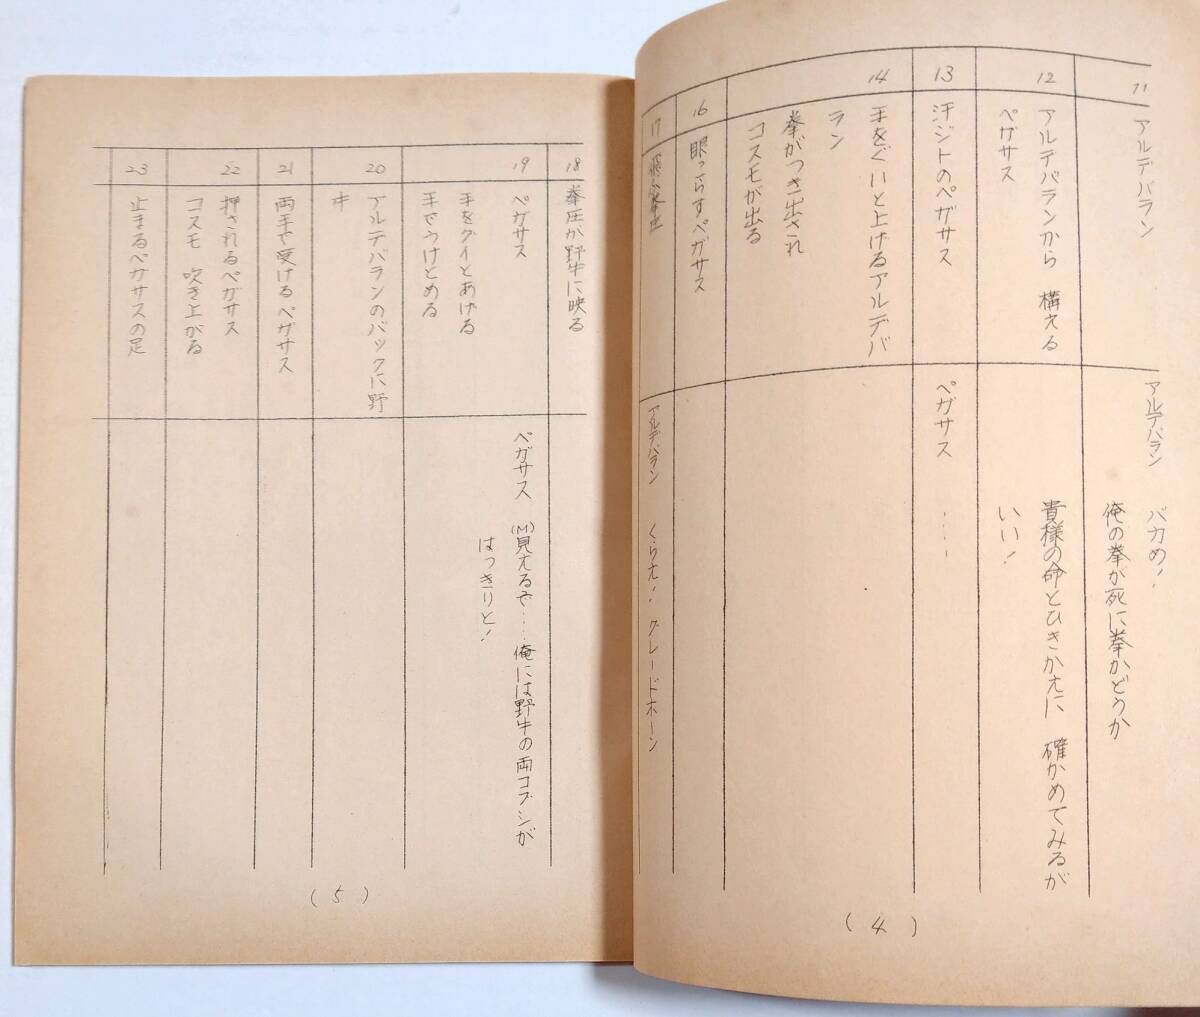 11
アルデバラン
アルデバラン
バカめ!
俺の拳が死に拳かどうか
12
アルデバランから 構える
ペガサス
貴様の命とひきかえに 確かめてみるが
いい!
13
汗ジトのペガサス
ペガサス
‥‥‥
14
手をぐいと上げるアルデバ
ラン
拳がつき出され
コスモが出る
16
眼こらすペガサス
17
アルデバラン くらえ! グレードホーン
(4)
18
拳圧が野牛に映る
19
ペガサス
手をグイとあげる
手でうけとめる
ペガサス (M)見えるぞ‥‥俺には野牛の両コブシが
はっきりと!
20
アルデバランのバックに野
牛
21
両手で受けるペガサス
22
押されるペガサス
コスモ 吹き上がる
23
止まるペガサスの足
(5)